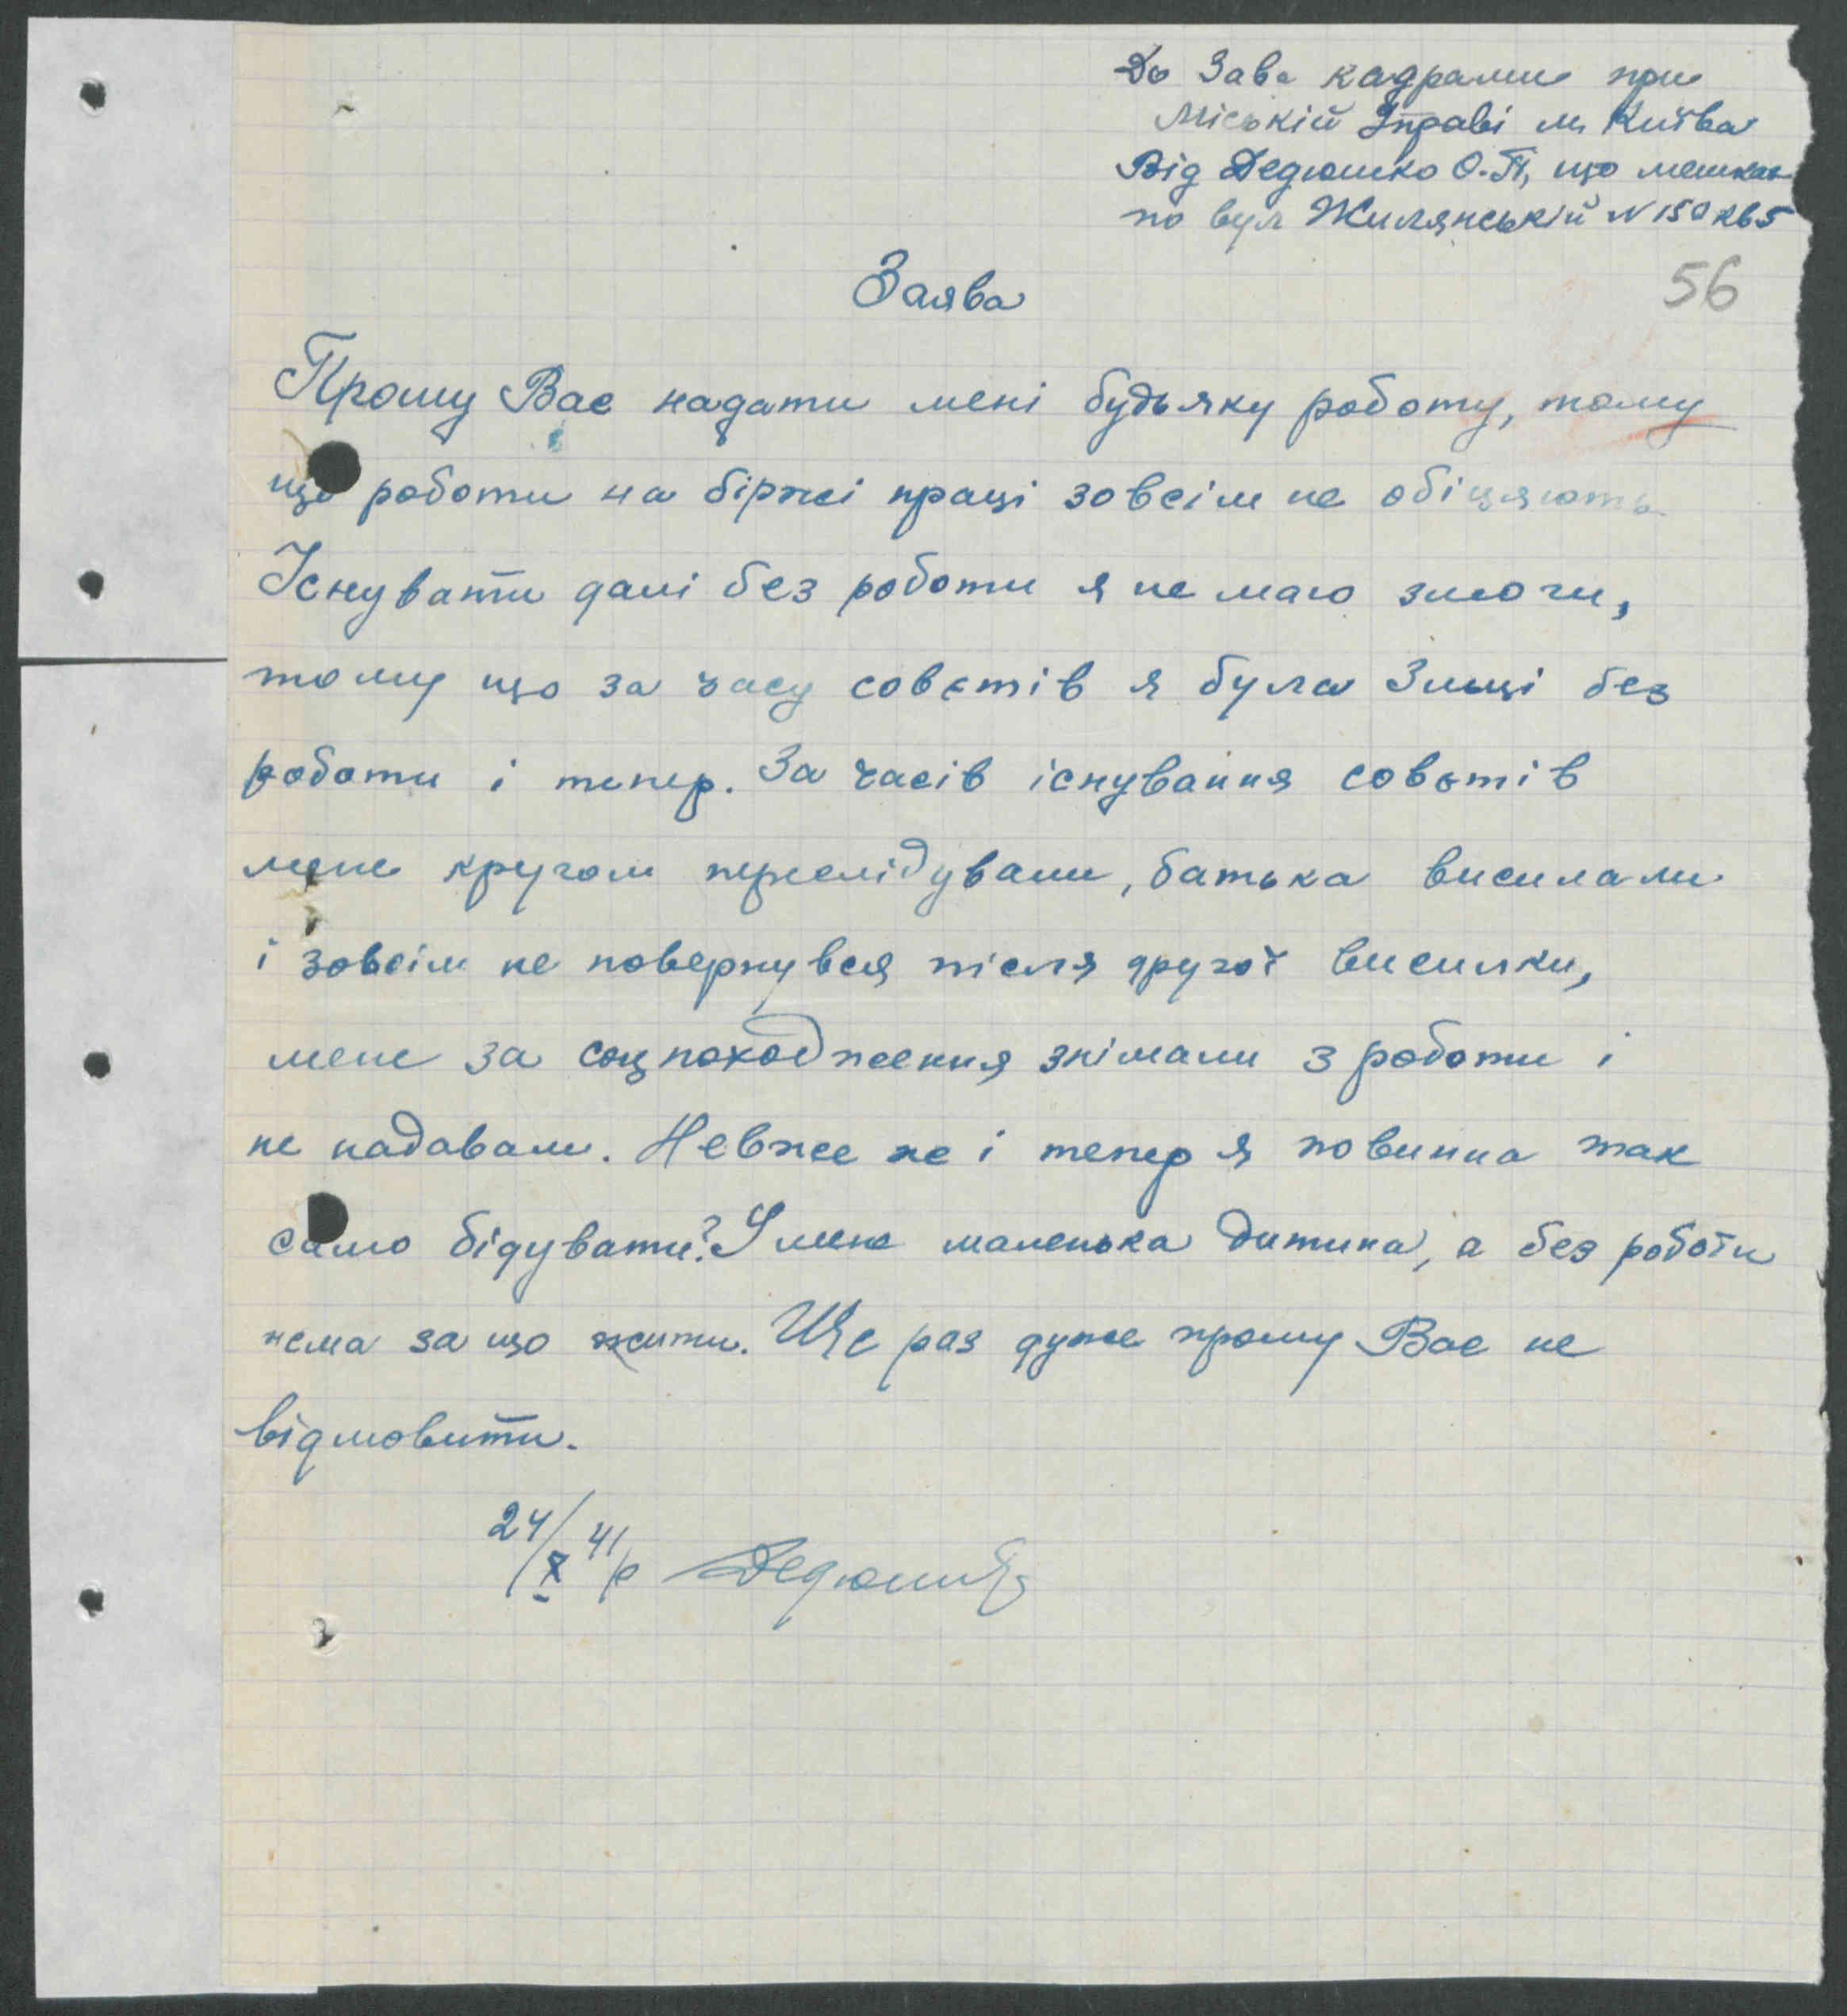 До Зав. кадрами при
Міській Управі м. Київа
Від Дедюшко О.П, що мешкає
по вул Жилянській N 150 кв 5
56
Заява
Прошу Вас надати мені будьяку роботу, тому
що роботи на біржі праці зовсім не обіцяють
Існувати далі без роботи я не маю змоги,
тому що за часу совєтів я була 3 місці без
роботи і тепер. За часів існування совєтів
мене кругом переслідували, батька висилали
і зовсім не повернувся після другої висилки,
мене за соцпоходження знімали з роботи і
не надавали. Невже же і тепер я повинна так
само бідувати? У мене маленька дитина, а без роботи
нема за що жити. Ще раз дуже прошу Вас не
відмовити.
24/X 41р Дедюшко